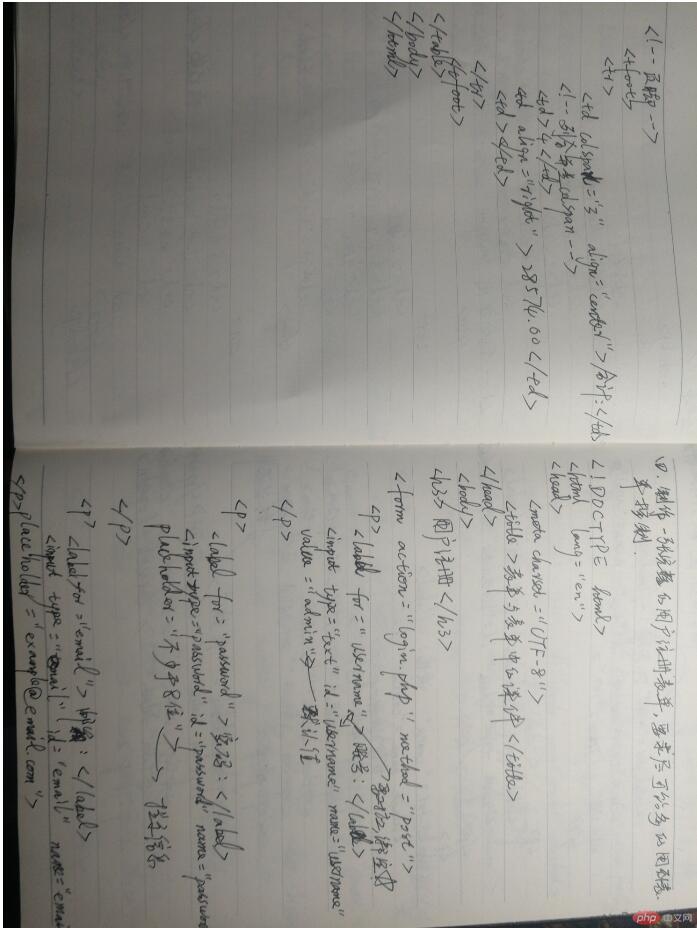 <!-- 页脚 -->
<tfoot>
<tr>
<td colspan="3" align="center">合计:</td>
<!-- 列合并 colspan -->
<td>4</td>
<td align="right">28574.00</td>
<td></td>
</tr>
</tfoot>
</table>
</body>
</html>
四.制作一张完整的用户注册表单,要求尽可能多的用到表
单控件.
<!DOCTYPE html>
<html lang="en">
<head>
<meta charset="UTF-8">
<title>表单与表单中的控件</title>
</head>
<body>
<h3>用户注册</h3>
<form action="login.php" method="post">
<p>
<label for="username">账号:</label>
<input type="text" id="username" name="username"
value="admin"> 默认值
</p>
<p>
<label for="password">密码:</label>
<input type="password" id="password" name="password
placeholder="不少于8位"> 提示信息
</p>
<p>
<label for="email">邮箱:</label>
<input type="email" id="email" name="emai
</p> placeholder="example@email.com">
php 中文网